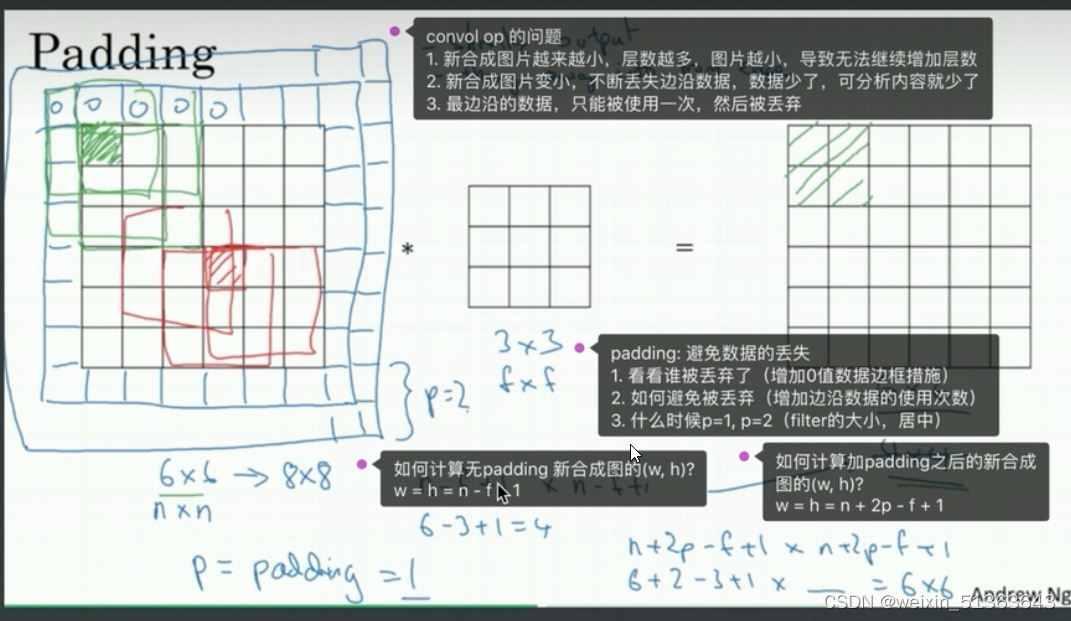 Padding
convol op 的问题
1. 新合成图片越来越小，层数越多，图片越小，导致无法继续增加层数
2. 新合成图片变小，不断丢失边沿数据，数据少了，可分析内容就少了
3. 最边沿的数据，只能被使用一次，然后被丢弃
output
0 0 0 0 0
*
=
3 x 3
f x f
p=2
padding: 避免数据的丢失
1. 看看谁被丢弃了（增加0值数据边框措施）
2. 如何避免被丢弃（增加边沿数据的使用次数）
3. 什么时候p=1, p=2（filter的大小，居中）
6x6 → 8x8
n x n
如何计算无padding 新合成图的(w, h)?
w = h = n - f + 1
x n-f+1
6-3+1=4
如何计算加padding之后的新合成
图的(w, h)?
w = h = n + 2p - f + 1
n+2p-f+1 x n+2p-f+1
6+2-3+1 x __ = 6x6
p = padding = 1
Andrew Ng
CSDN @weixin_51363643